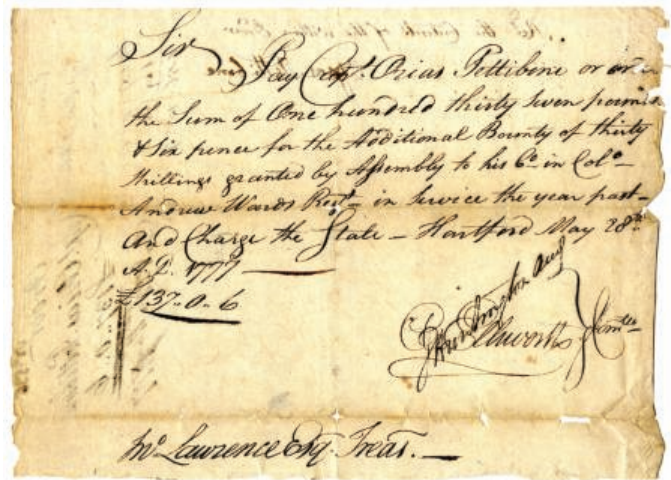 Sir
Pay Capt. Ozias Pettibone or order
the Sum of One hundred thirty Seven pounds
& Six pence for the Additional Bounty of thirty
Shillings granted by Assembly to his Co. in Colo.
Andrew Wards Regt. in Service the year past
And Charge the State – Hartford May 28th
A.D. 1777
£137.0.6
Ellsworth Comtee
Jno. Lawrence Esq. Treas.